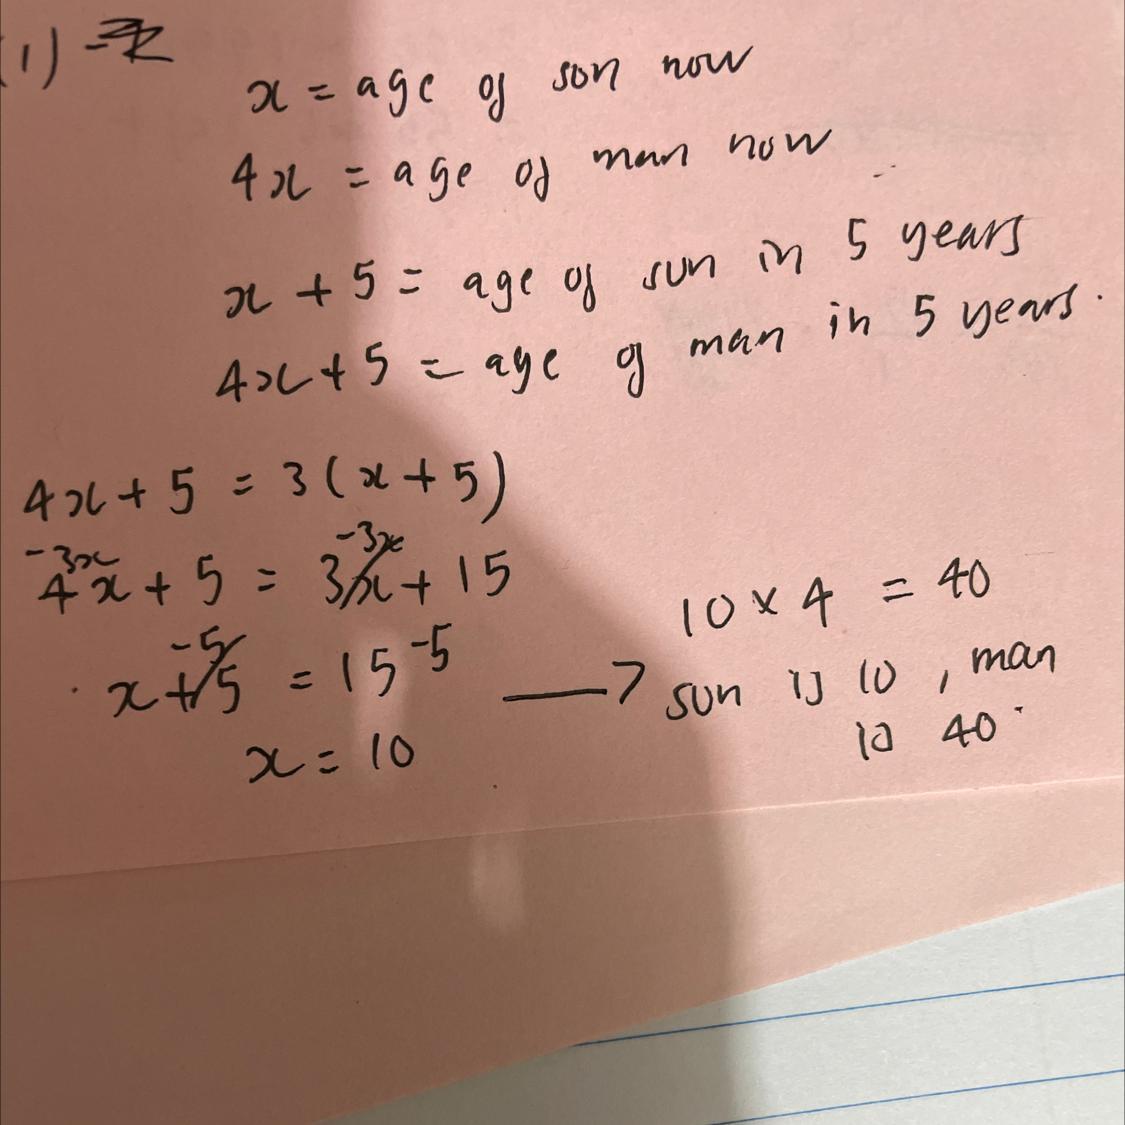 (1)
x = age of son now
4x = age of man now
x + 5 = age of son in 5 years
4x + 5 = age of man in 5 years.
4x + 5 = 3(x + 5)
-3x -3x
4x + 5 = 3x + 15
-5
x + 5 = 15 -5
x = 10
10 × 4 = 40
son is 10, man
is 40.